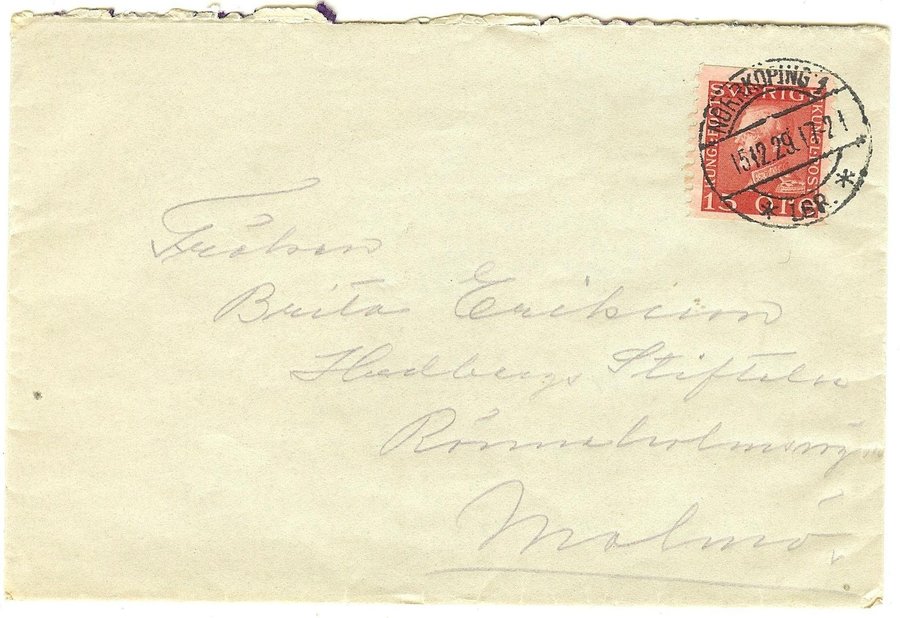 NORRKÖPING 1
15.12.29.17-21
* LBR. *
SVERIGE
15 ÖRE
Fröken
Brita Eriksson
Hedbergs Stiftelse
Rönneholmsväg
Malmö